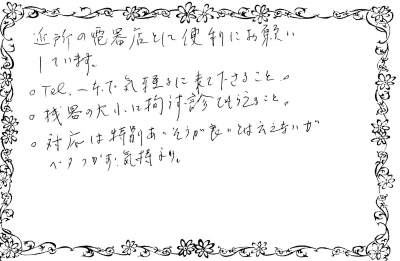 近所の電器店として便利にお願い
しています。
○ Tel 一本で、気軽に来て下さること。
○ 機器の大小に拘らず診てもらえること。
○ 対応は特別あいそうが良いとは言えないが
ベタつかず、気持よい。